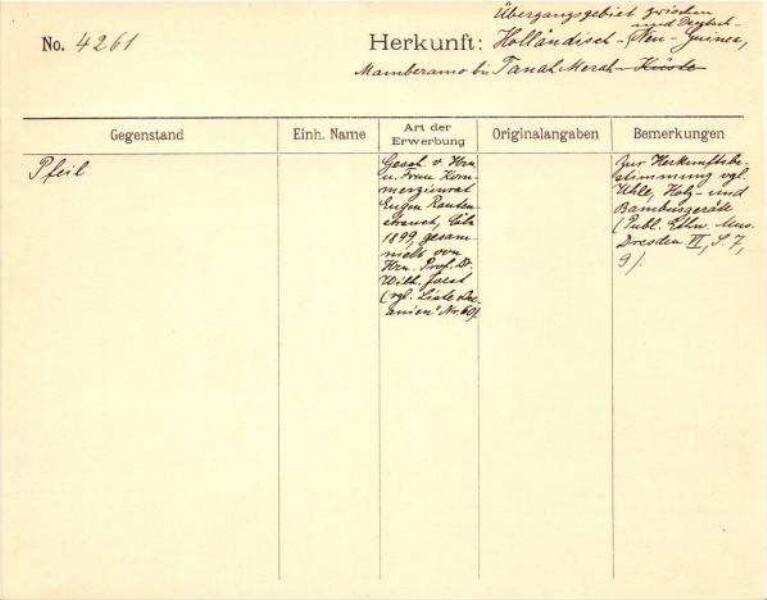 Übergangsgebiet zwischen
und Deutsch-
No. 4261 Herkunft: Holländisch- Neu-Guinea,
Mamberamo bis Tanah Merah-Küste
Gegenstand Einh. Name Art der Erwerbung Originalangaben Bemerkungen
Pfeil
Gesch. v. Hrn
u. Frau Kom-
merzienrat
Eugen Rauten-
strauch, Cöln
1899, gesam-
melt von
Hrn. Prof. Dr.
Wilh. Joest
(vgl. Liste "Oce-
anien" Nr. 60).
Zur Herkunftsbe-
stimmung vgl.
Uhle, Holz- und
Bambusgeräte
(Publ. Ethn. Mus.
Dresden VI, S. 7,
9).